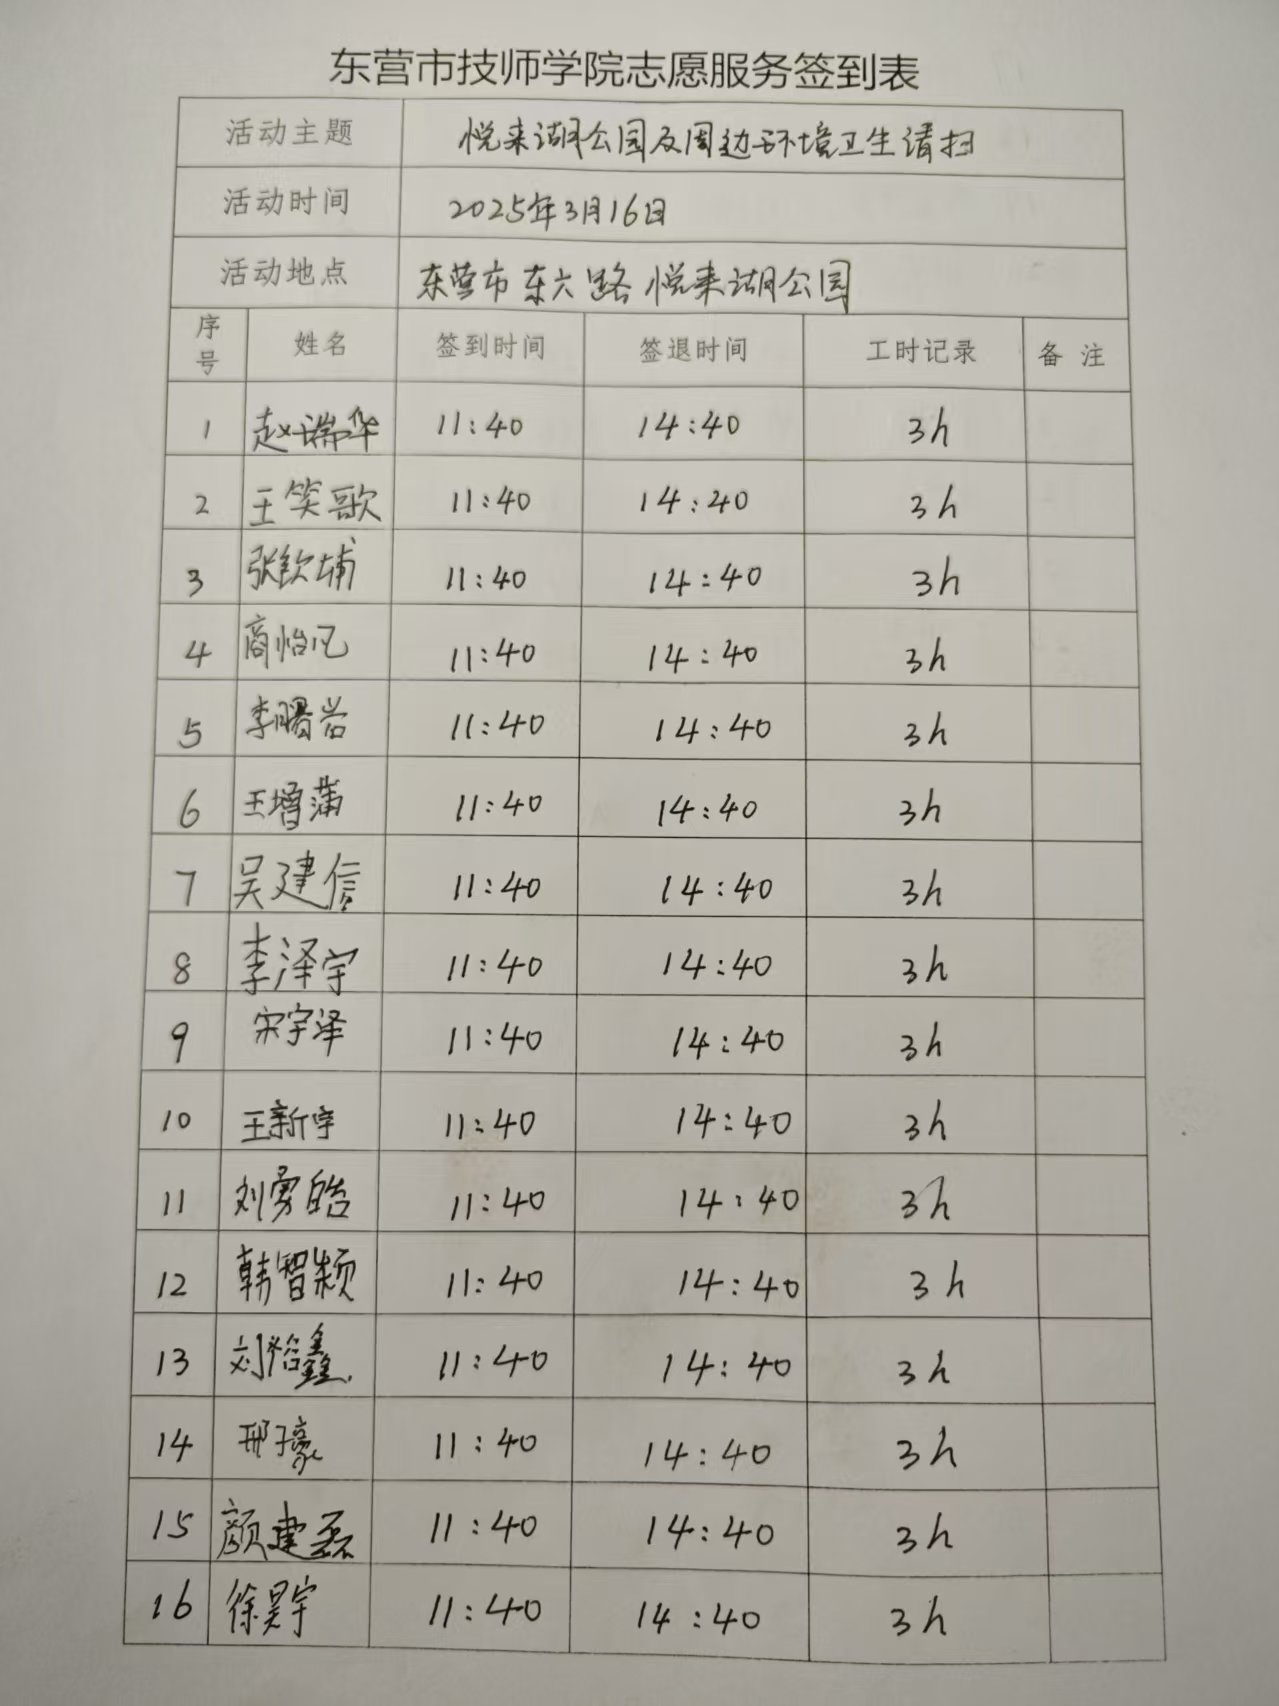 东营市技师学院志愿服务签到表
活动主题 悦来湖公园及周边环境卫生请扫
活动时间 2025年3月16日
活动地点 东营市东六路悦来湖公园
序号 姓名 签到时间 签退时间 工时记录 备注
1 赵瑞华 11:40 14:40 3h
2 王笑歌 11:40 14:40 3h
3 张钦埔 11:40 14:40 3h
4 商怡凡 11:40 14:40 3h
5 李曙岩 11:40 14:40 3h
6 王增蒲 11:40 14:40 3h
7 吴建信 11:40 14:40 3h
8 李泽宇 11:40 14:40 3h
9 宋宇泽 11:40 14:40 3h
10 王新宇 11:40 14:40 3h
11 刘勇皓 11:40 14:40 3h
12 韩智颖 11:40 14:40 3h
13 刘 鑫 11:40 14:40 3h
14 邢子豪 11:40 14:40 3h
15 颜建磊 11:40 14:40 3h
16 徐昊宇 11:40 14:40 3h